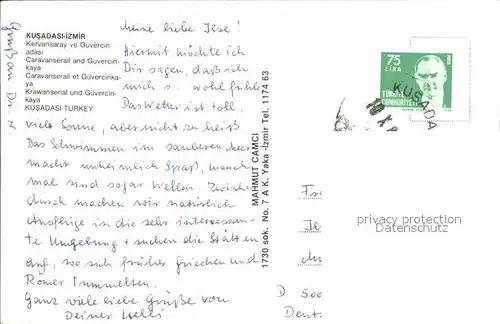 KUŞADASI-İZMİR
Kervansaray ve Güvercin
adası
Caravanserail and Güvercin-
kaya
Caravanserail et Güvercinka-
ya
Krawanserial und Güvercin-
kaya
KUŞADASI-TURKEY
Gruß an Dr.
meine liebe Ilse!
Hiermit möchte ich
Dir sagen, daß ich
mich s. wohl fühle
Das Wetter ist toll.
viel Sonne, aber nicht zu heiß
Das Schwimmen im sauberen Meer
macht unheimlich Spaß, manch
mal sind sogar Wellen. Zwischen
durch machen wir natürlich
Ausflüge in die sehr interessan-
te Umgebung + suchen die Stätten
auf, wo sich früher Griechen und
Römer tummelten.
Ganz viele liebe Grüße von
Deiner
MAHMUT CAMCI
1730 sok. No. 7 A K. Yaka -İzmir Tel. 1174 63
75
LIRA
TÜRKİYE
CUMHURİYETİ
KUŞADA
Fr
Il
D 500
Deut
privacy protection
Datenschutz